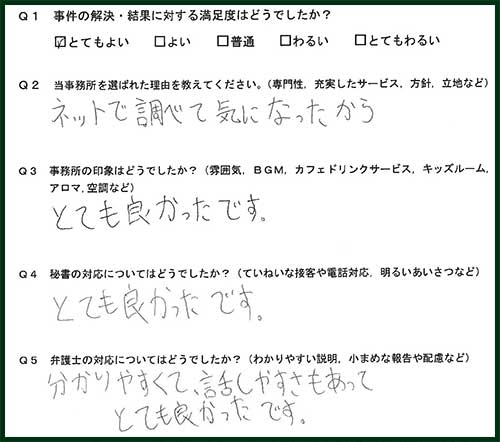 Q1 事件の解決・結果に対する満足度はどうでしたか？
☑とてもよい □よい □普通 □わるい □とてもわるい
Q2 当事務所を選ばれた理由を教えてください。（専門性，充実したサービス，方針，立地など）
ネットで調べて気になったから
Q3 事務所の印象はどうでしたか？（雰囲気，BGM，カフェドリンクサービス，キッズルーム，
アロマ，空調など）
とても良かったです。
Q4 秘書の対応についてはどうでしたか？（ていねいな接客や電話対応，明るいあいさつなど）
とても良かったです。
Q5 弁護士の対応についてはどうでしたか？（わかりやすい説明，小まめな報告や配慮など）
分かりやすくて、話しやすさもあって
とても良かったです。